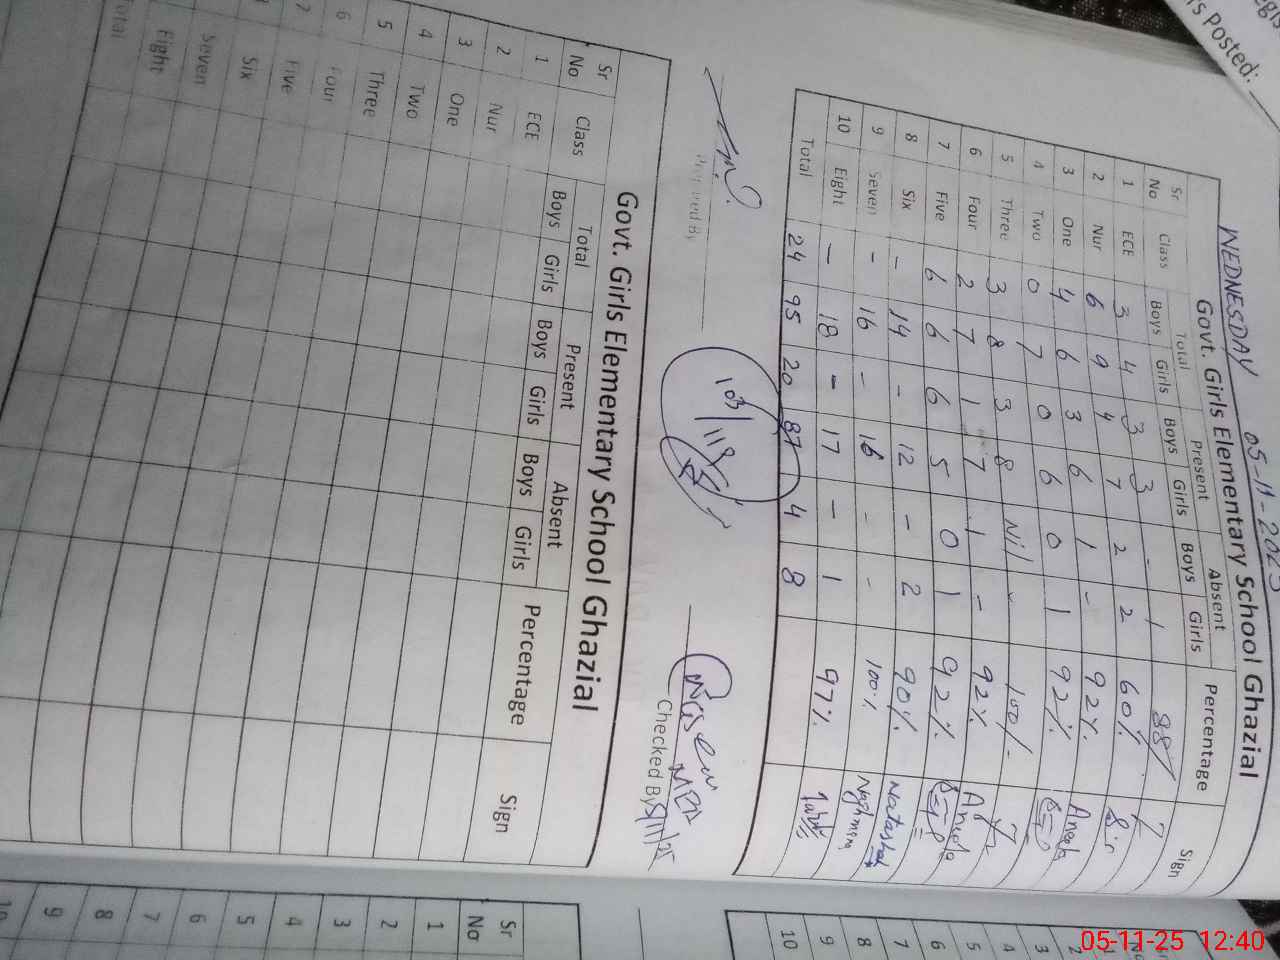 WEDNESDAY 05-11-2025
Govt. Girls Elementary School Ghazial
Sr No Class Total Present Absent Percentage Sign
Boys Girls Boys Girls Boys Girls
1 ECE 3 4 3 3 - 1 88%
2 Nur 6 9 4 7 2 2 60%
3 One 4 6 3 6 1 - 92%
4 Two 0 7 0 6 0 1 92%
5 Three 3 8 3 8 Nil - 100%
6 Four 2 7 1 7 1 - 92%
7 Five 6 6 6 5 0 1 92%
8 Six - 14 - 12 - 2 90% Natasha
9 Seven - 16 - 16 - - 100%
10 Eight - 18 - 17 - 1 97%
Total 24 95 20 87 4 8
Prepared By
Checked By 5/11/25
Govt. Girls Elementary School Ghazial
Sr No Class Total Present Absent Percentage Sign
Boys Girls Boys Girls Boys Girls
1 ECE
2 Nur
3 One
4 Two
5 Three
6 Four
7 Five
Six
Seven
Eight
Total
s Posted:
Sr No
1
2
3
4
5
6
7
8
9
10
2
3
4
5
6
7
8
9
10
05-11-25 12:40